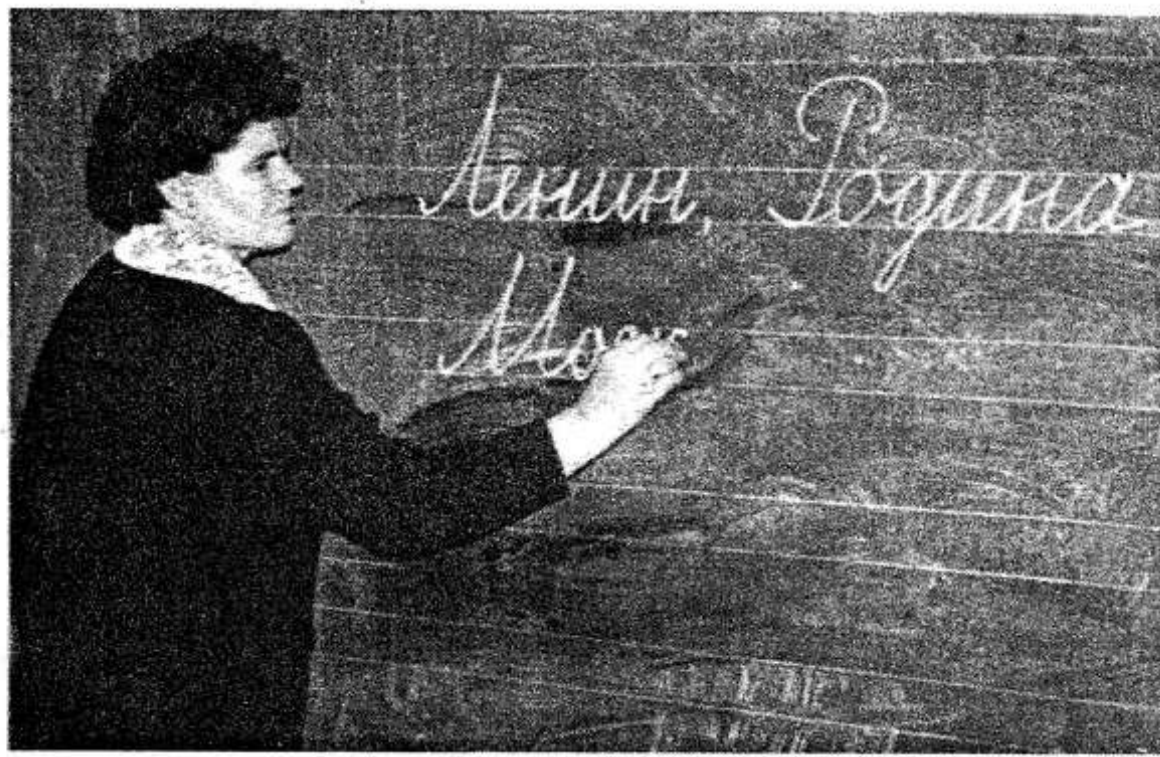 Ленин, Родина
Моск